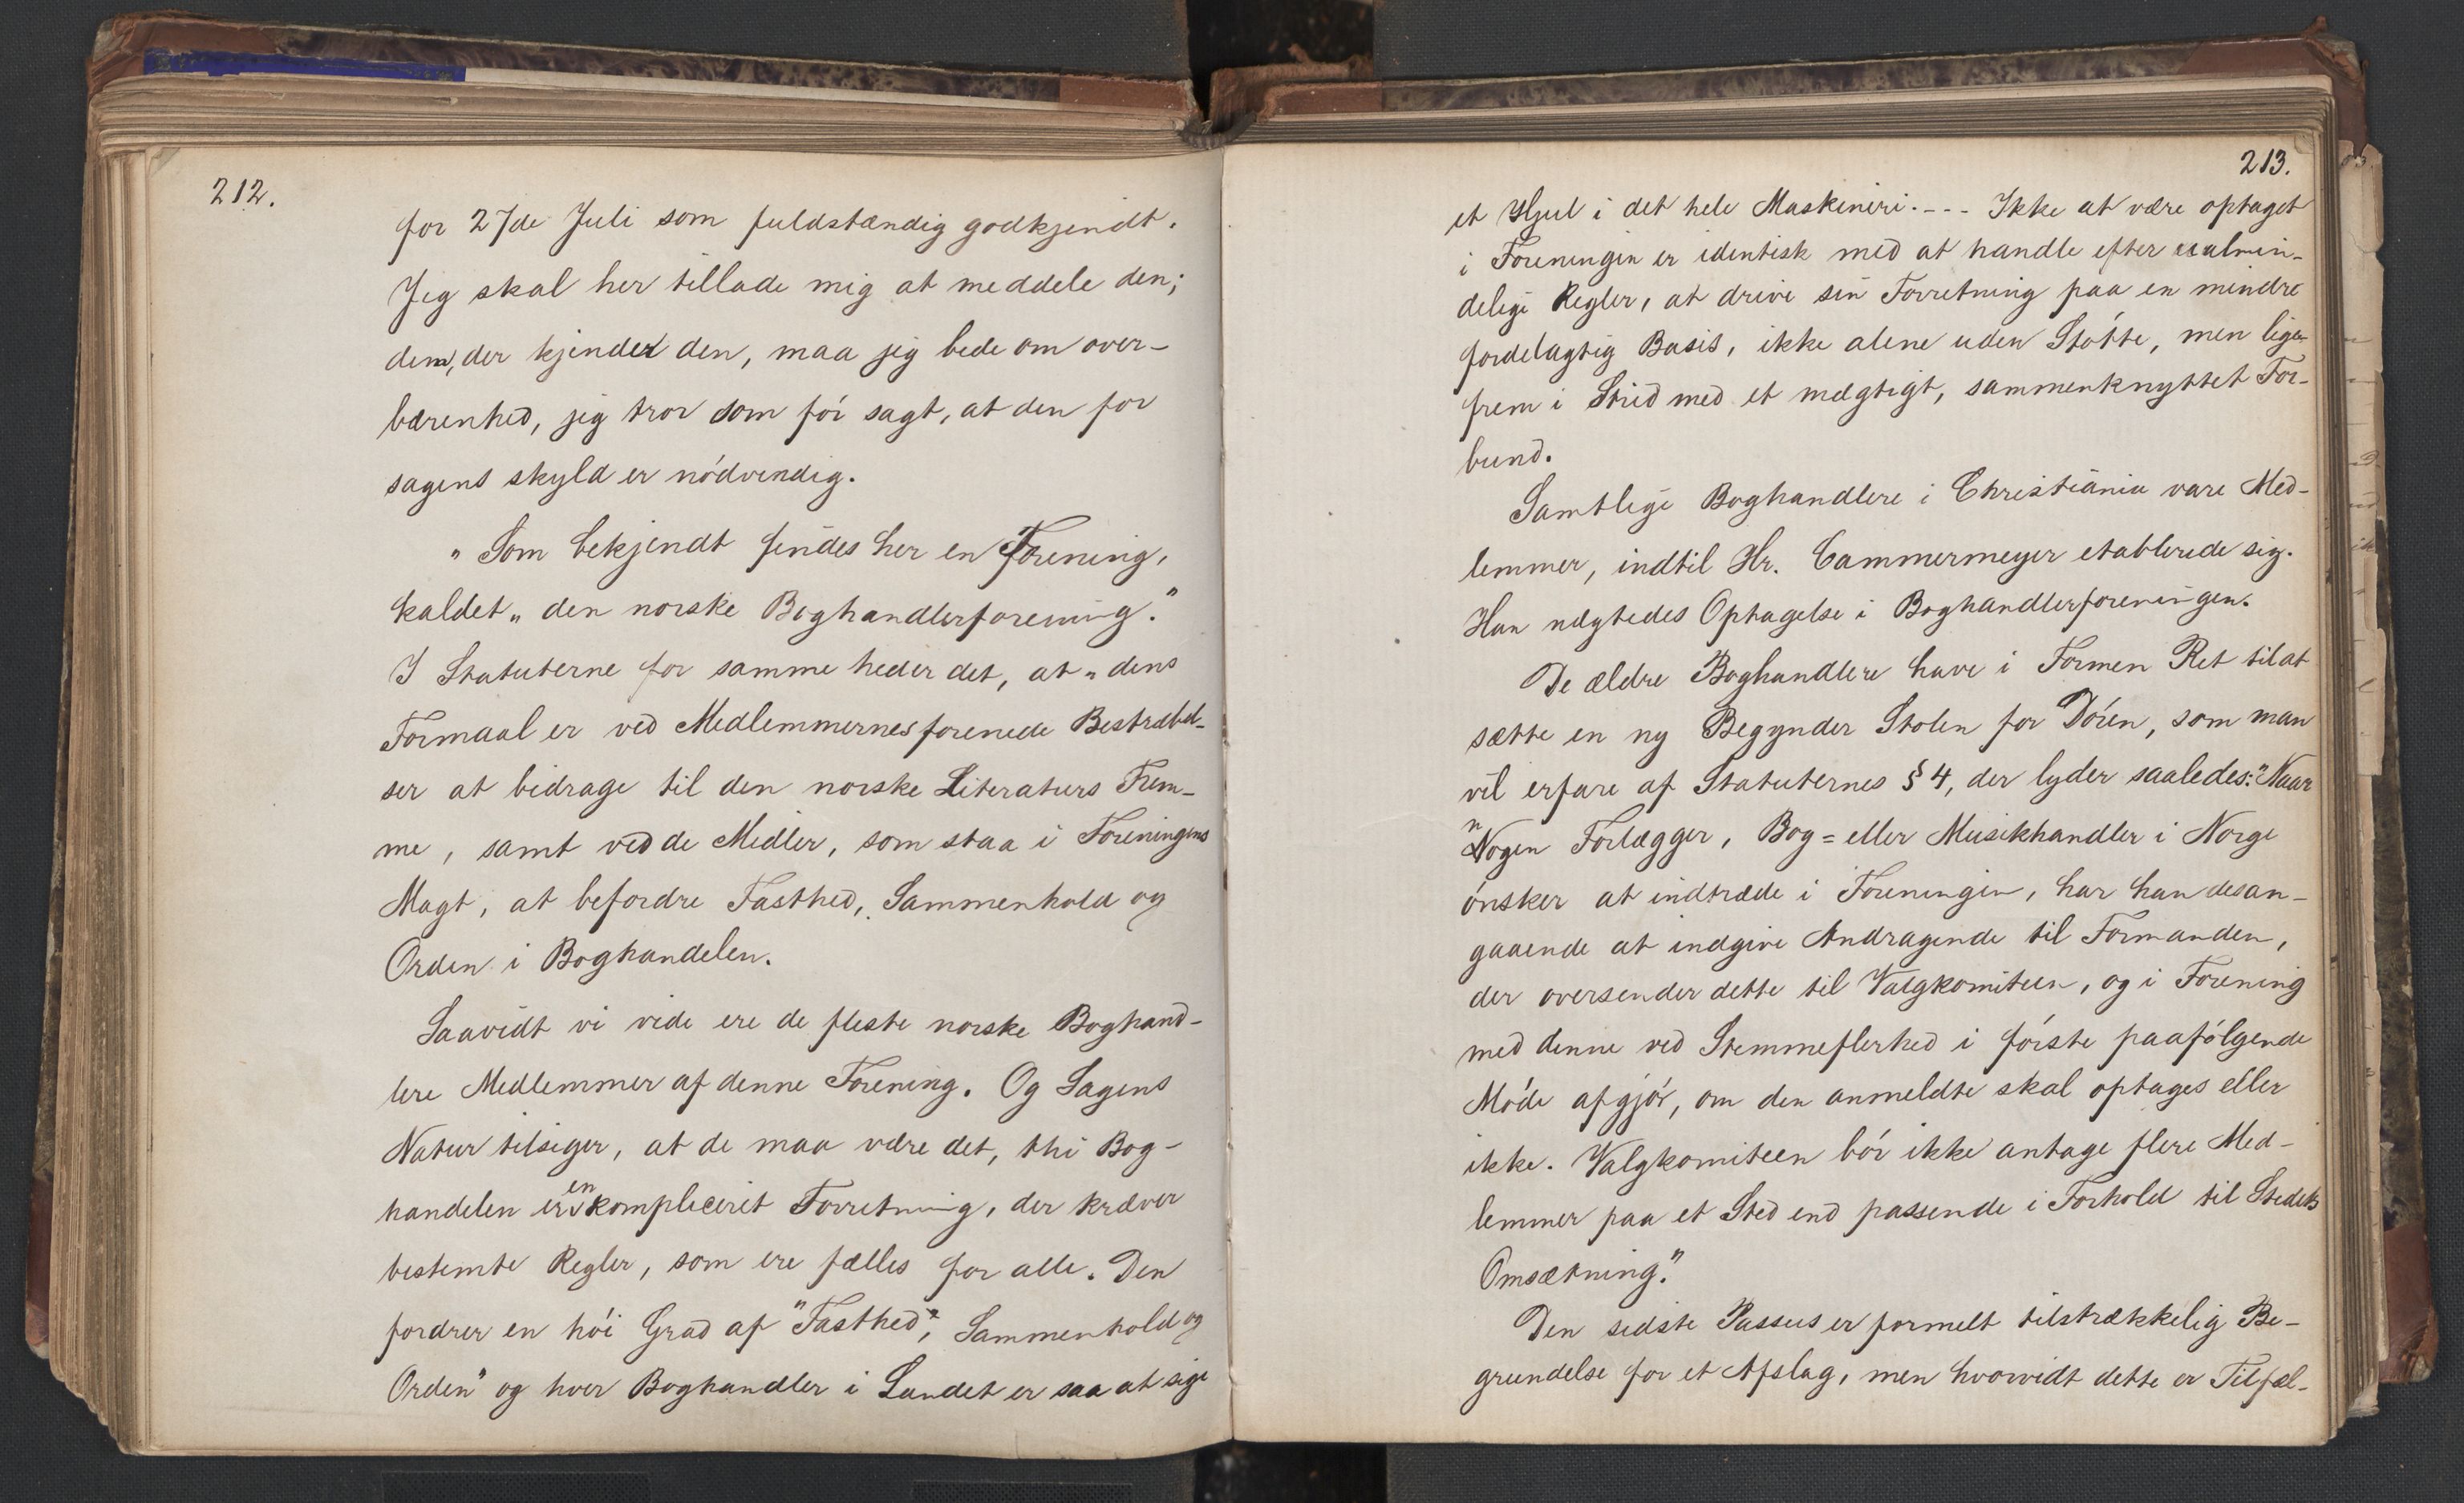 212.
for 27de Juli som fuldstændig godkjendt.
Jeg skal her tillade mig at meddele den;
dem, der kjender den, maa jeg bede om over-
bærenhed, jeg tror som før sagt, at den for
sagens skyld er nødvendig.
„Som bekjendt findes her en Forening,
kaldet „den norske Boghandlerforening."
I Statuterne for samme heder det, at „dens
Formaal er ved Medlemmernes forenede Bestræbel-
ser at bidrage til den norske Literaturs Frem-
me, samt ved de Midler, som staa i Foreningens
Magt, at befordre Fasthed, Sammenhold og
Orden i Boghandelen.
Saavidt vi vide ere de fleste norske Boghand-
lere Medlemmer af denne Forening. Og Sagens
Natur tilsiger, at de maa være det, thi Bog-
handelen er en kompliceret Forretning, der kræver
bestemte Regler, som ere fælles for alle. Den
fordrer en høi Grad af "Fasthed", Sammenhold og
Orden" og hver Boghandler i Landet er saa at sige
213.
et Hjul i det hele Maskineri. --- Ikke at være optaget
i Foreningen er identisk med at handle efter ualmin-
delige Regler, at drive sin Forretning paa en mindre
fordelagtig Basis, ikke alene uden Støtte, men lige-
frem i Strid med et mægtigt, sammenknyttet For-
bund.
Samtlige Boghandlere i Christiania vare Med-
lemmer, indtil Hr. Cammermeyer etablerede sig.
Han nægtedes Optagelse i Boghandlerforeningen.
De ældre Boghandlere have i Formen Ret til at
sætte en ny Begynder Stolen for Døren, som man
vil erfare af Statuternes § 4, der lyder saaledes: "Naar
nogen Forlægger, Bog= eller Musikhandler i Norge
ønsker at indtræde i Foreningen, har han desan-
gaaende at indgive Andragende til Formanden,
der oversender dette til Valgkomiteen, og i Forening
med denne ved Stemmeflerhed i første paafølgende
Møde afgjør, om den anmeldte skal optages eller
ikke. Valgkomiteen bør ikke antage flere Med-
lemmer paa et Sted end passende i Forhold til Stedets
Omsætning."
Den sidste Passus er formelt tilstrækkelig Be-
grundelse for et Afslag, men hvorvidt dette er Tilfæl-